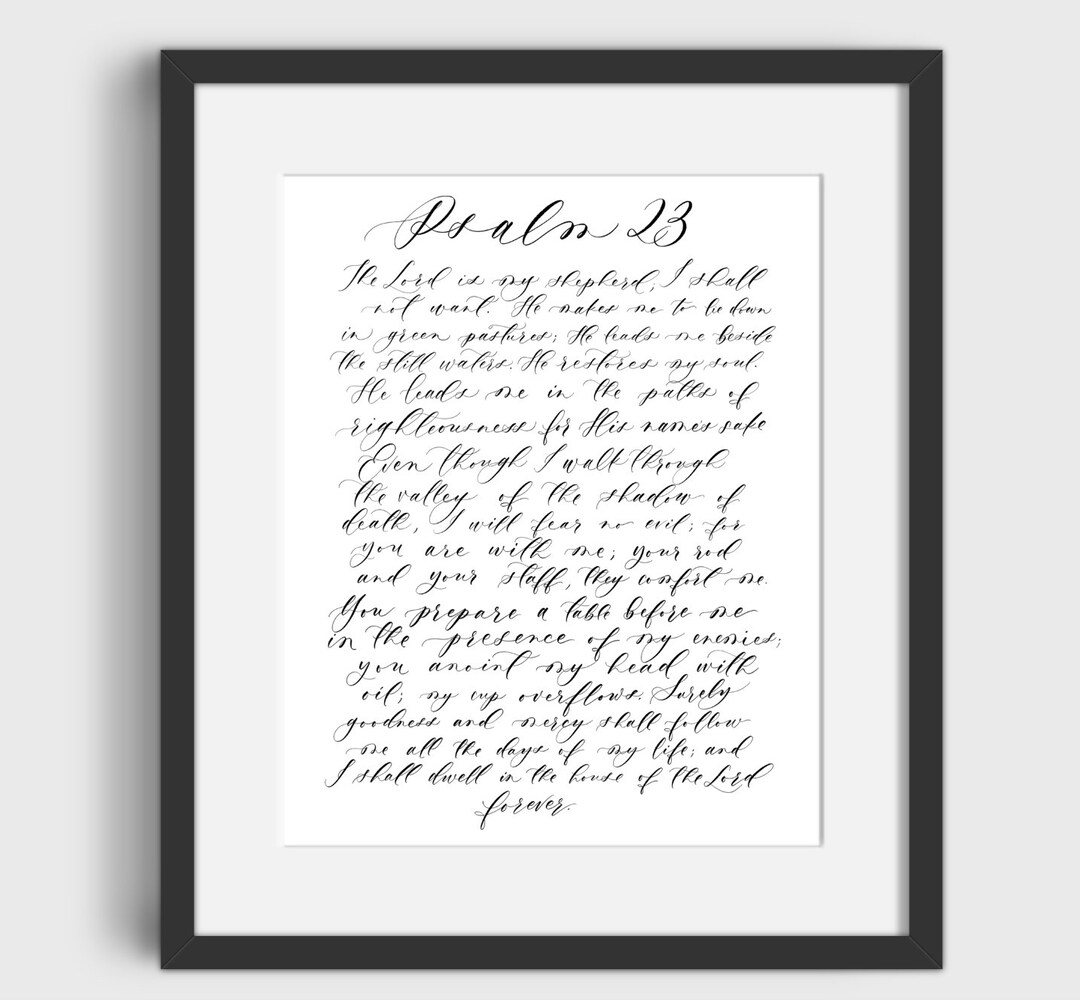 Psalm 23
The Lord is my shepherd; I shall
not want. He makes me to lie down
in green pastures; He leads me beside
the still waters. He restores my soul.
He leads me in the paths of
righteousness for His name's sake
Even though I walk through
the valley of the shadow of
death, I will fear no evil; for
you are with me; your rod
and your staff, they comfort me.
You prepare a table before me
in the presence of my enemies;
you anoint my head with
oil; my cup overflows. Surely
goodness and mercy shall follow
me all the days of my life; and
I shall dwell in the house of the Lord
forever.